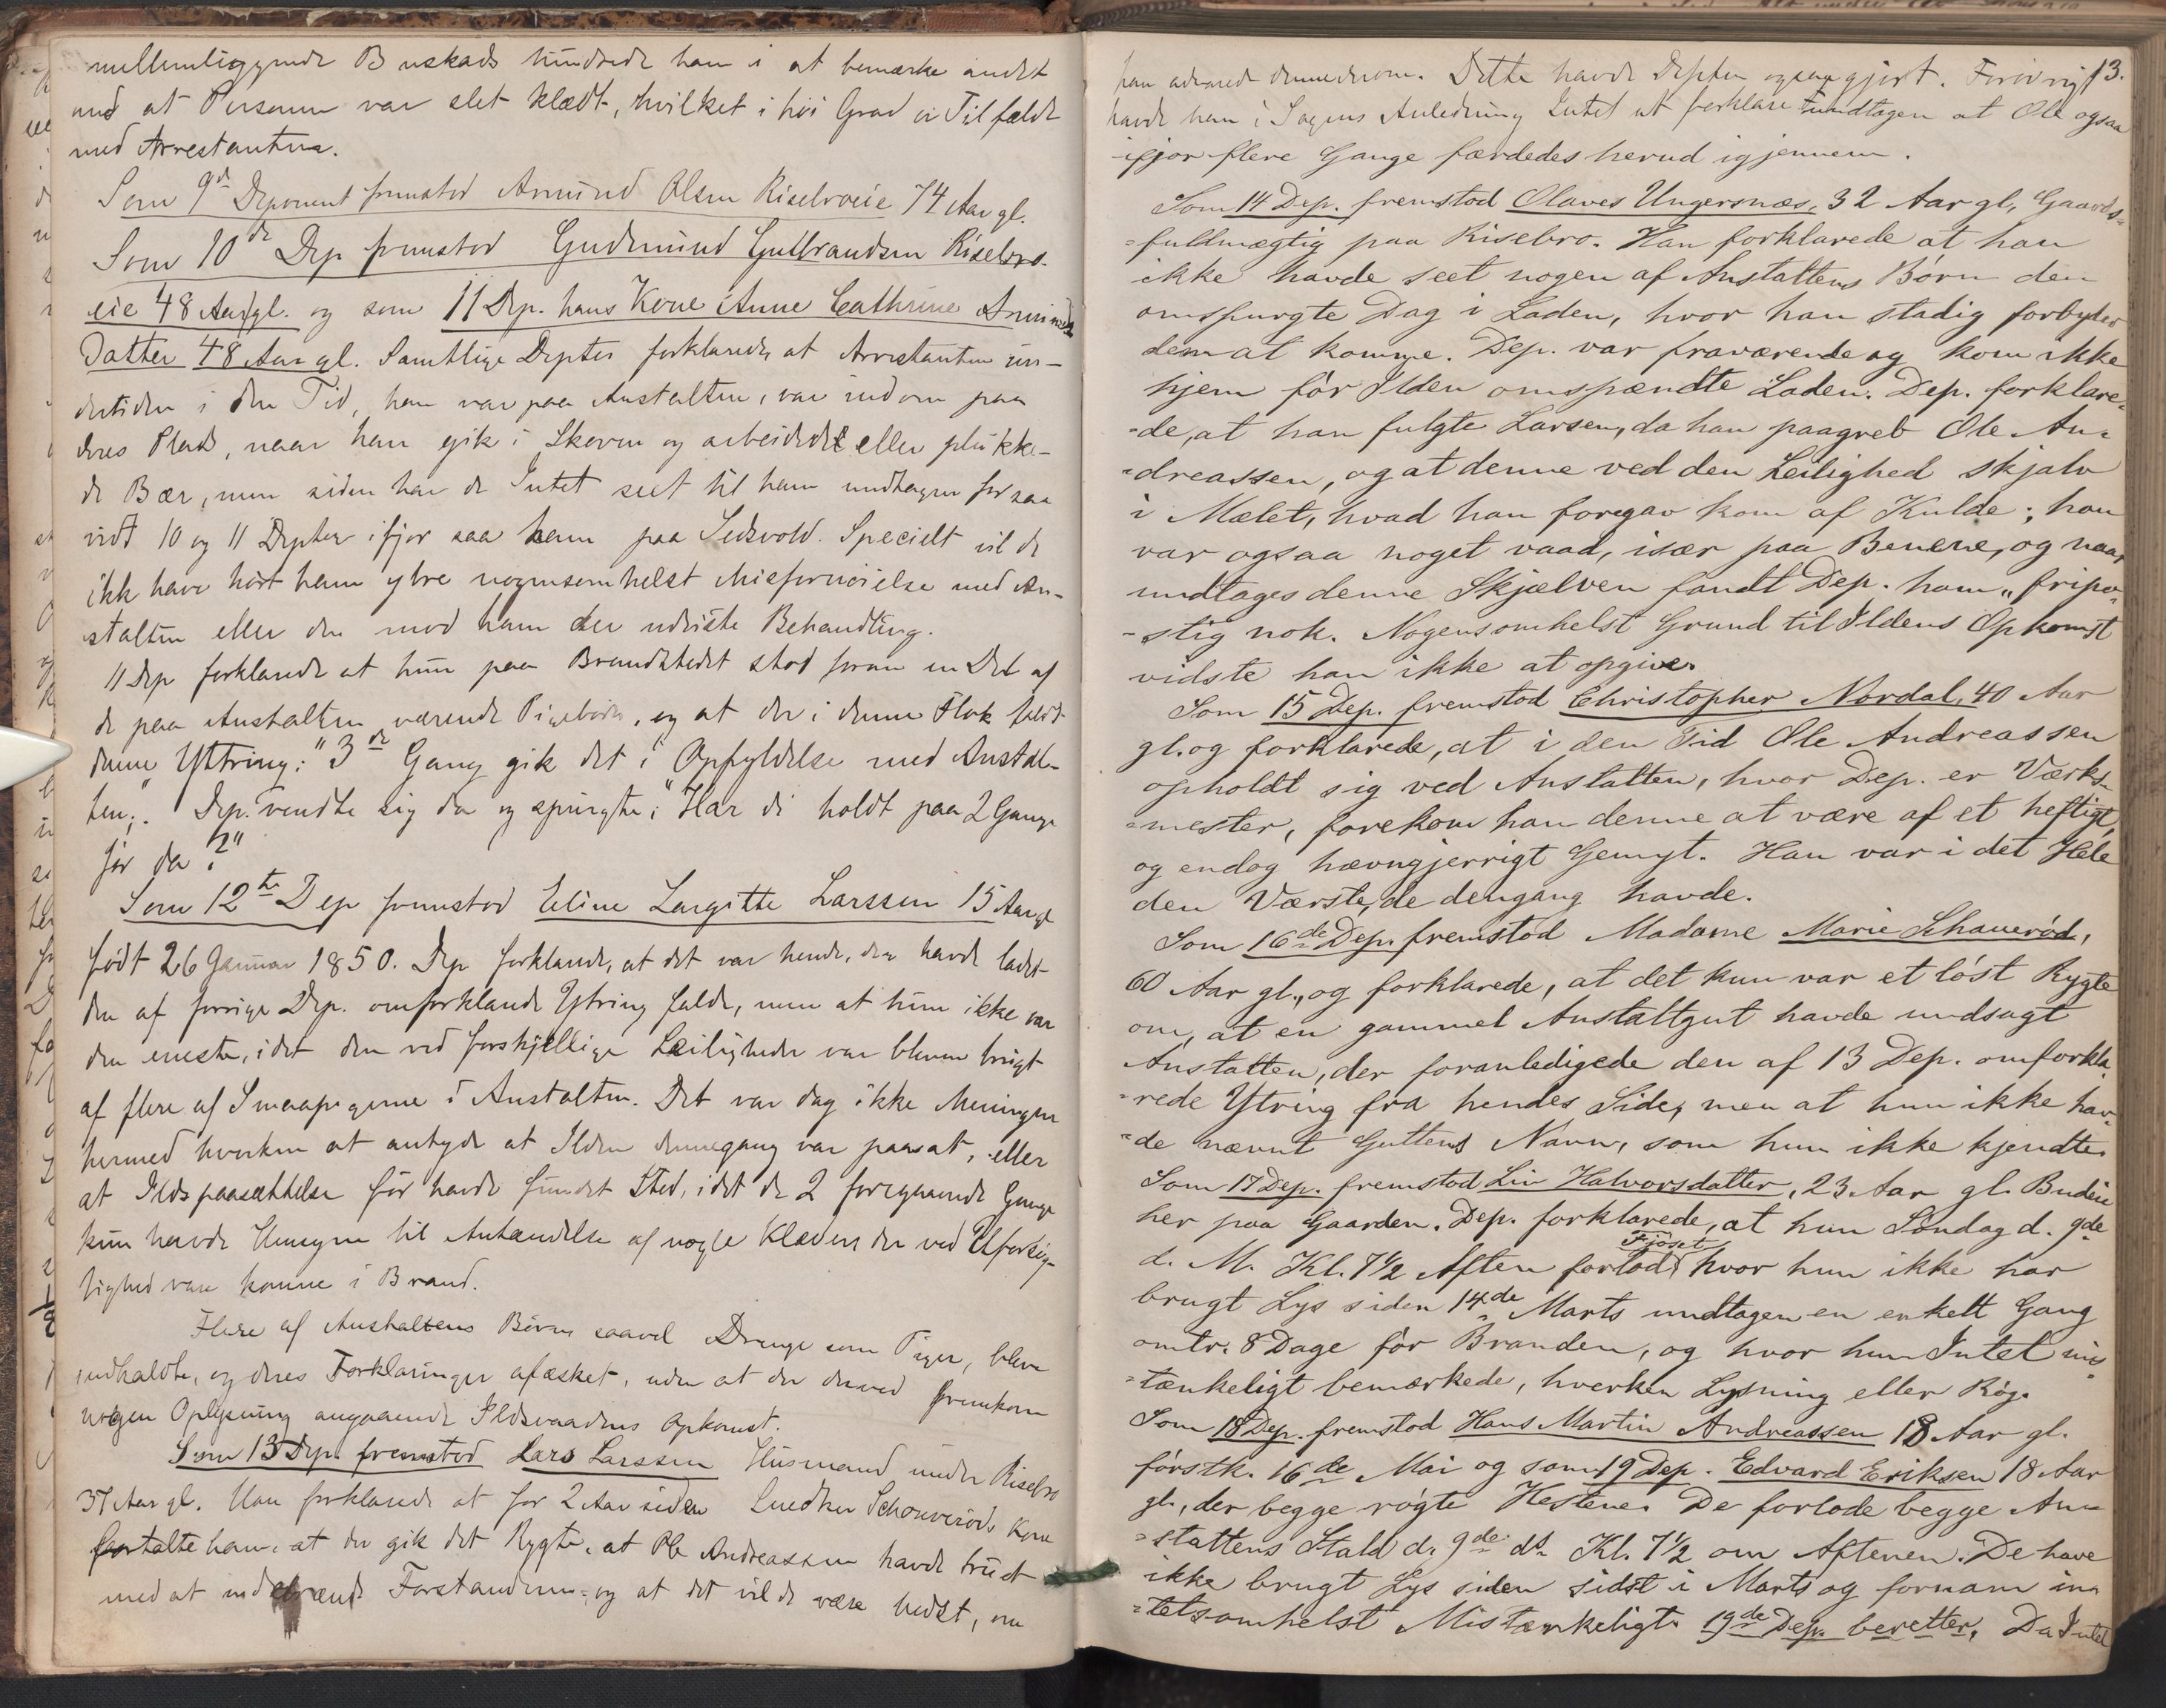 mellemliggende Buskads hindrede ham i at bemærke andet
end at Personen var slet klædt, hvilket i høi Grad er Tilfældet
med Arrestanten.
Som 9de Deponent fremstod Amund Olsen Risebroeie 74 Aar gl.
Som 10de Dep fremstod Gudmund Gulbrandsen Risebro-
eie 48 Aar gl. og som 11 Dep. hans Kone Anne Cathrine Amunds
Datter 48 Aar gl. Samtlige Depter forklarede, at Arrestanten un-
dertiden i den Tid, han var paa Anstalten, var indom paa
deres Plads, naar han gik i Skoven og arbeidede eller plukke-
de Bær, men siden har de Intet seet til ham undtagen forsaa
vidt 10 og 11 Depter ifjor saa ham paa Sedsvold. Specielt vil de
ikke have hørt ham ytre nogensomhelst Misfornøielse med An-
stalten eller den mod ham der udviste Behandling.
11 Dep forklarede at hun paa Brandstedet stod foran en Del af
de paa Anstalten værende Pigebørn, og at der i denne Flok faldt
denne Yttring: "3de Gang gik det i Opfyldelse med Anstal-
ten". Dep. vendte sig da og spurgte: "Har di holdt paa 2 Gange
før da?"
Som 12te Dep fremstod Eline Largitte Larssen 15 Aar gl
født 26 Januar 1850. Dep forklarede, at det var hende, der havde ladet
den af forrige Dep. omforklarede Ytring falde, men at hun ikke var
den eneste, idet den ved forskjellige Leiligheder var bleven brugt
af flere af Smaapigerne i Anstalten. Det var dog ikke Meningen
hermed hverken at antyde at Ilden dennegang var paasat, eller
at Ildspaasættelse før havde fundet Sted, idet de 2 foregaaende Gange
kun havde Hensyn til Antændelse af nogle Klæder der ved Uforsig-
tighed vare komne i Brand.
Flere af Anstaltens Børn saavel Drenge som Piger, bleve
indkaldte, og deres Forklaringer afæsket, uden at der derved fremkom
nogen Oplysning angaaende Ildsvaadens Opkomst.
Som 13 Dep. fremstod Lars Larssen Husmand under Risebro
37 Aar gl. Han forklarede at for 2 Aar siden Snedker Schouerøds Kone
fortalte ham, at der gik det Rygte, at Ole Andreassen havde truet
med at indebrænde Forstanderen, og at det vilde være bedst, om
13.
han advared dennederom. Dette havde Depten ogsaa gjort. Forøvrigt
havde han i Sagens Anledning Intet at forklare undtagen at Ole ogsaa
ifjor flere Gange færdedes herud igjennem.
Som 14 Dep. fremstod Olaves Ungersnæs, 32 Aar gl, Gaards-
fuldmægtig paa Risebro. Han forklarede at han
ikke havde seet nogen af Anstaltens Børn den
omspurgte Dag i Laden, hvor han stadig forbyder
dem at komme. Dep. var fraværende og kom ikke
hjem før Ilden omspændte Laden. Dep. forklare-
-de, at han fulgte Larsen, da han paagreb Ole An-
-dreassen, og at denne ved den Leilighed skjalv
i Mælet, hvad han foregav kom af Kulde; han
var ogsaa noget vaad, især paa Benene, og naar
undtages denne Skjælven fandt Dep. ham "fripo-
-stig nok. Nogensomhelst Grund til Ildens Opkomst
vidste han ikke at opgive.
Som 15 Dep. fremstod Christopher Nordal, 40 Aar
gl. og forklarede, at i den Tid Ole Andreassen
opholdt sig ved Anstalten, hvor Dep. er Værks-
-mester, forekom han denne at være af et heftigt,
og endog hævngjerrigt Gemyt. Han var i det Hele
den Værste, de dengang havde.
Som 16de Dep. fremstod Madame Marie Schauerød,
60 Aar gl., og forklarede, at det kun var et løst Rygte
om, at en gammel Anstaltgut havde undsagt
Anstalten, der foranledigede den af 13 Dep. omforkla-
-rede Ytring fra hendes Side, men at hun ikke hav-
-de nævnt Guttens Navn, som hun ikke kjendte.
Som 17 Dep. fremstod Liv Halvorsdatter, 23 Aar gl. Budeie
her paa Gaarden. Dep. forklarede, at hun Søndag d. 9de
d. M. Kl. 7½ Aften forlod Fjøset hvor hun ikke har
brugt Lys siden 14de Marts undtagen en enkelt Gang
omtr. 8 Dage før Branden, og hvor hun Intet mis-
-tænkeligt bemærkede, hverken Lysning eller Røg.
Som 18 Dep. fremstod Hans Martin Andreassen 18 Aar gl.
førstk. 16de Mai og som 19 Dep. Edvard Eriksen 18 Aar
gl., der begge røgte Hestene. De forlode begge An-
-staltens Stald d. 9de ds. Kl. 7½ om Aftenen. De have
ikke brugt Lys siden sidst i Marts og fornam in-
-tetsomhelst Mistænkeligt. 19de Dep. beretter, Da Intet